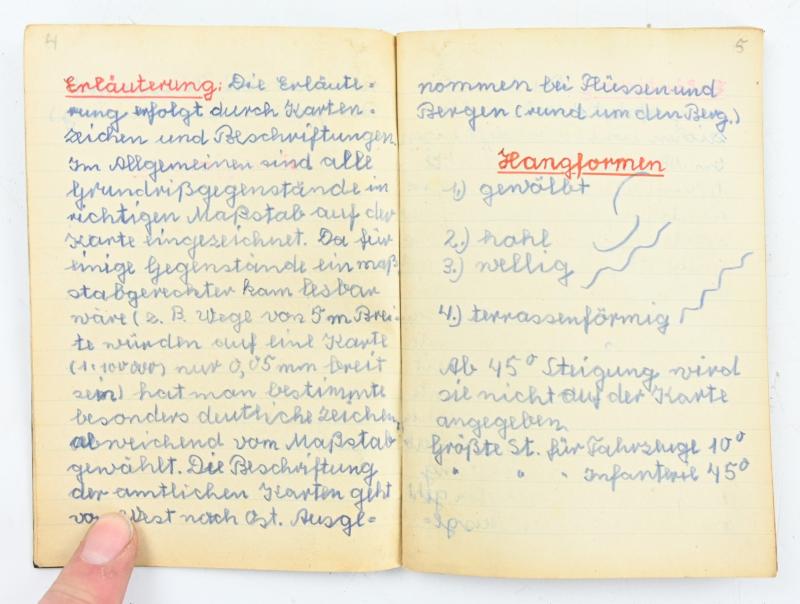 4
Erläuterung: Die Erläute-
rung erfolgt durch Karten-
zeichen und Beschriftungen.
Im Allgemeinen sind alle
Grundrißgegenstände in
richtigen Maßstab auf der
Karte eingezeichnet. Da für
einige Gegenstände ein maß
stabgerechter kam lesbar
wäre (z. B. Wege von 5 m Brei-
te würden auf eine Karte
(1:100000) nur 0,05 mm breit
sein) hat man bestimmte
besonders deutliche Zeichen,
abweichend vom Maßstab
gewählt. Die Beschriftung
der amtlichen Karten geht
von West nach Ost. Ausge-
5
nommen bei Flüssen und
Bergen (rund um den Berg.)
Hangformen
1.) gewölbt
2.) hohl
3.) wellig
4.) terrassenförmig
Ab 45° Steigung wird
sie nicht auf der Karte
angegeben.
Größte St. für Fahrzeuge 10°
" " " Infanterie 45°